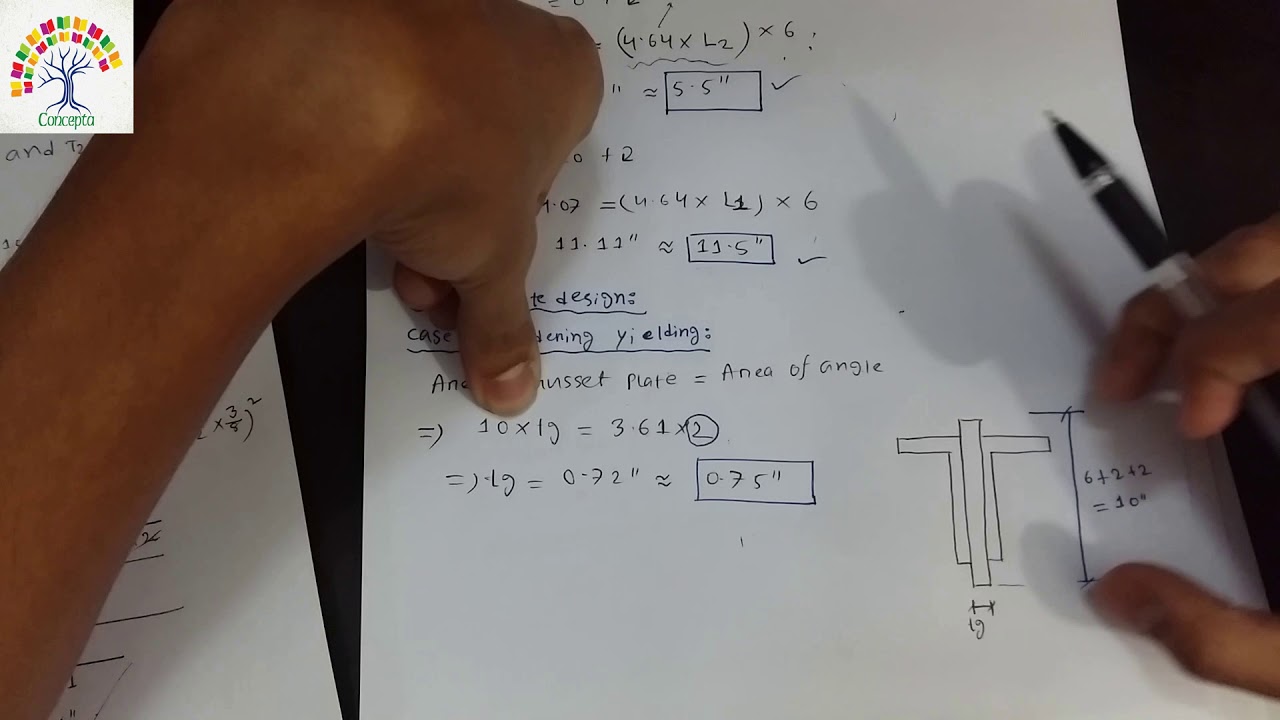 Concepta
and T2
= (4.64 × L2) × 6
" ≈ 5.5" ✓
0 + 2
1.07 = (4.64 × L1) × 6
11.11" ≈ 11.5" ✓
te design:
case dening yielding:
Are usset plate = Area of angle
⇒ 10 × tg = 3.61 × 2
⇒ tg = 0.72" ≈ 0.75"
6+2+2
= 10"
tg